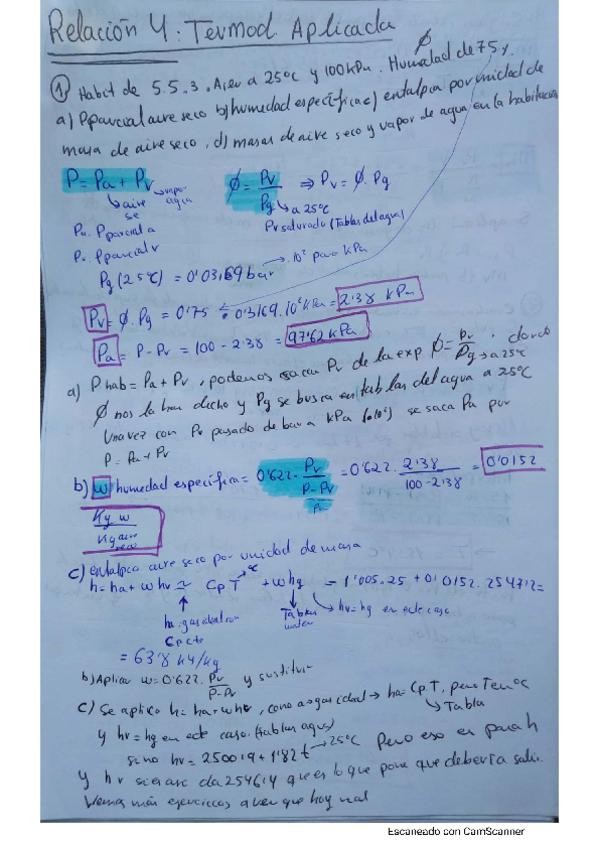 Relación 4: Termod. Aplicada
① Habit de 5.5.3. Aire a 25°C y 100kPa. Humedad de 75%. Ø
a) Pparcial aire seco b) humedad específica c) entalpia por unidad de
masa de aire seco, d) masas de aire seco y vapor de agua en la habitacion
P = Pa + Pv → vapor agua
↳ aire se
Ø = Pv/Pg ⇒ Pv = Ø. Pg
↳ a 25°C
Pv saturado (Tablas del agua)
Pa. Pparcial a
Pv. Pparcial v
Pg (25°C) = 0'03169 bar → 10² para kPa
Pv = Ø. Pg = 0'75 · 0'03169.10² kPa = 2'38 kPa
Pa = P - Pv = 100 - 2'38 = 97'62 kPa
a) P hab = Pa + Pv, podemos sacar Pv de la exp Ø = Pv/Pg → a 25°C, donde
Ø nos la han dicho y Pg se busca en tablas del agua a 25°C
Una vez con Pv pasado de bar a kPa (·10²) se saca Pa por
P = Pa + Pv
b) w humedad específica = 0'622. Pv/P-Pv = 0'622. 2'38/100-2'38 = 0'0152
Pa
Kg w/Kg aire seco
c) entalpia aire seco por unidad de masa
h = ha + w hv ≃ Cp T → °C + w hg = 1'005.25 + 0'0152. 2547'2 =
ha: gas ideal con
Cp cte
Tablas
↳ hv = hg en este caso
= 63'8 kJ/kg
b) Aplicar w = 0'622. Pv/P-Pv y sustituir
c) Se aplica h = ha + w hv, como a → gas ideal → ha = Cp. T, pero T en °C
↳ Tabla
y hv = hg en este caso. (tablas agua)
si no hv = 2500'9 + 1'82 t → 25°C Pero eso es para h
y hv siempre da 2546'4 que es lo que pone que debería salir.
Vemos más ejercicios a ver que hay mal
Escaneado con CamScanner